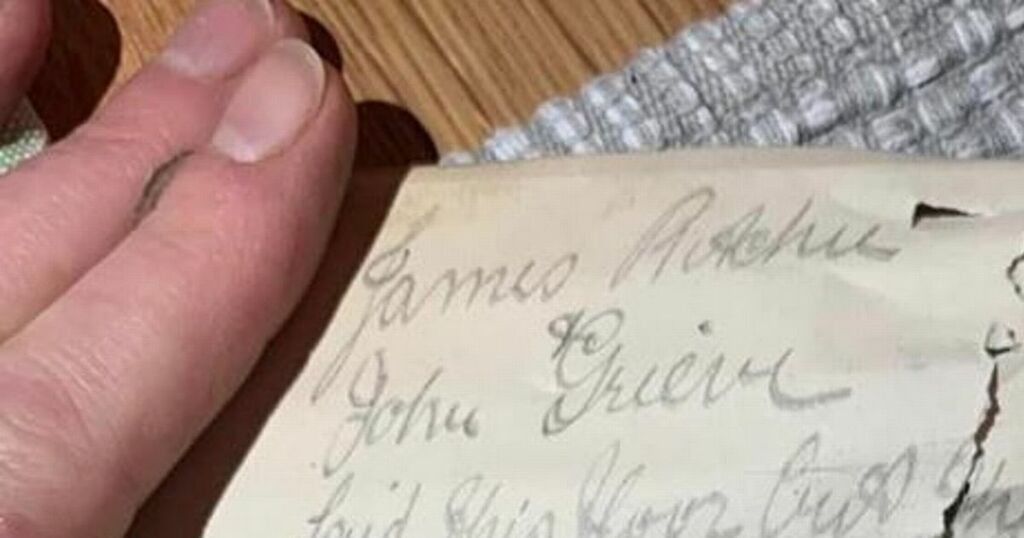 James Ritchie
&
John Grieve
laid this floor but